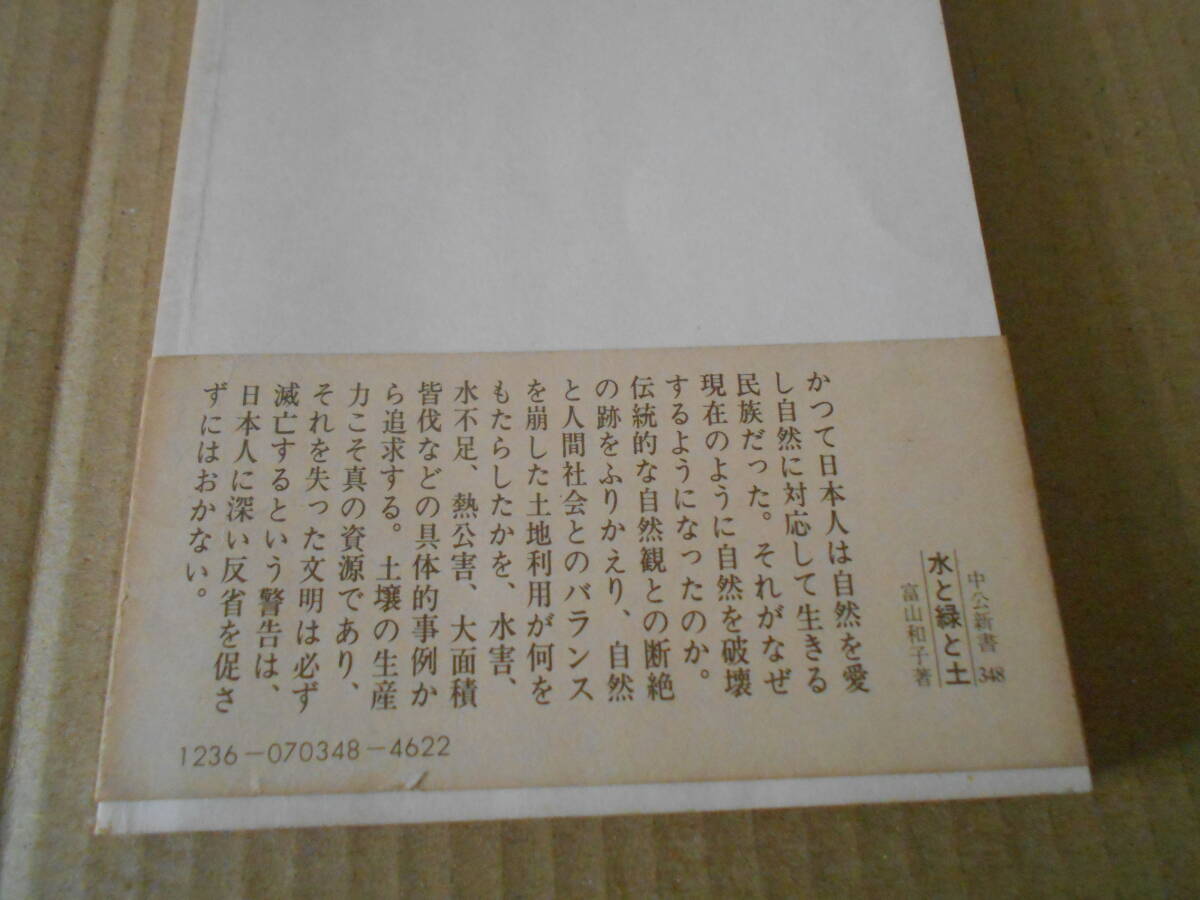 中公新書 348
水と緑と土
富山和子著
かつて日本人は自然を愛
し自然に対応して生きる
民族だった。それがなぜ
現在のように自然を破壊
するようになったのか。
伝統的な自然観との断絶
の跡をふりかえり、自然
と人間社会とのバランス
を崩した土地利用が何を
もたらしたかを、水害、
水不足、熱公害、大面積
皆伐などの具体的事例か
ら追求する。土壌の生産
力こそ真の資源であり、
それを失った文明は必ず
滅亡するという警告は、
日本人に深い反省を促さ
ずにはおかない。
1236-070348-4622